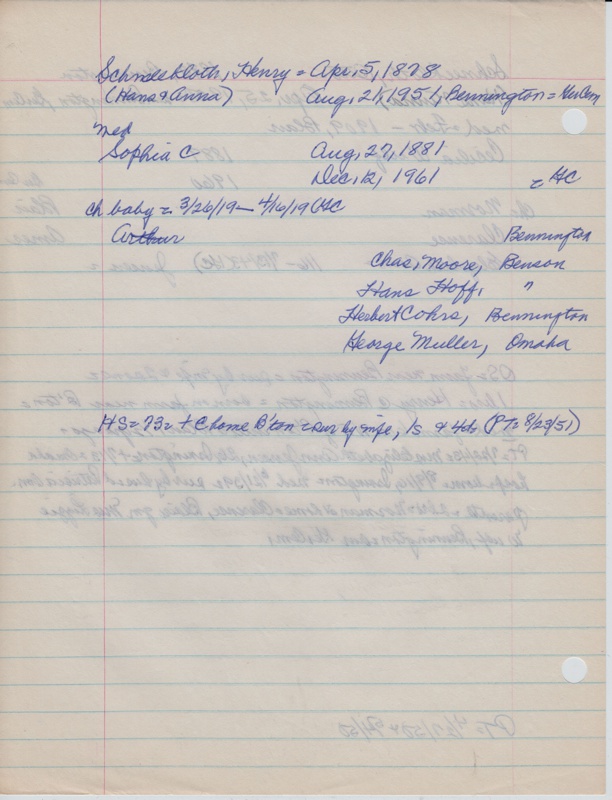 Schneekloth, Henry = Apr. 5, 1878
(Hans & Anna) Aug. 21, 1951, Bennington =
med
Sophia C Aug, 27, 1881
Dec, 12, 1961 = HC
ch baby = 3/26/19 - 4/16/19 (HC
Arthur Bennington
Chas, Moore, Benson
Hans Hoff, "
Herbert Cohrs, Bennington
George Muller, Omaha
HS = 73 = + @ home B'ton = sur by wife, 1s & 4ds (PT = 8/23/51)